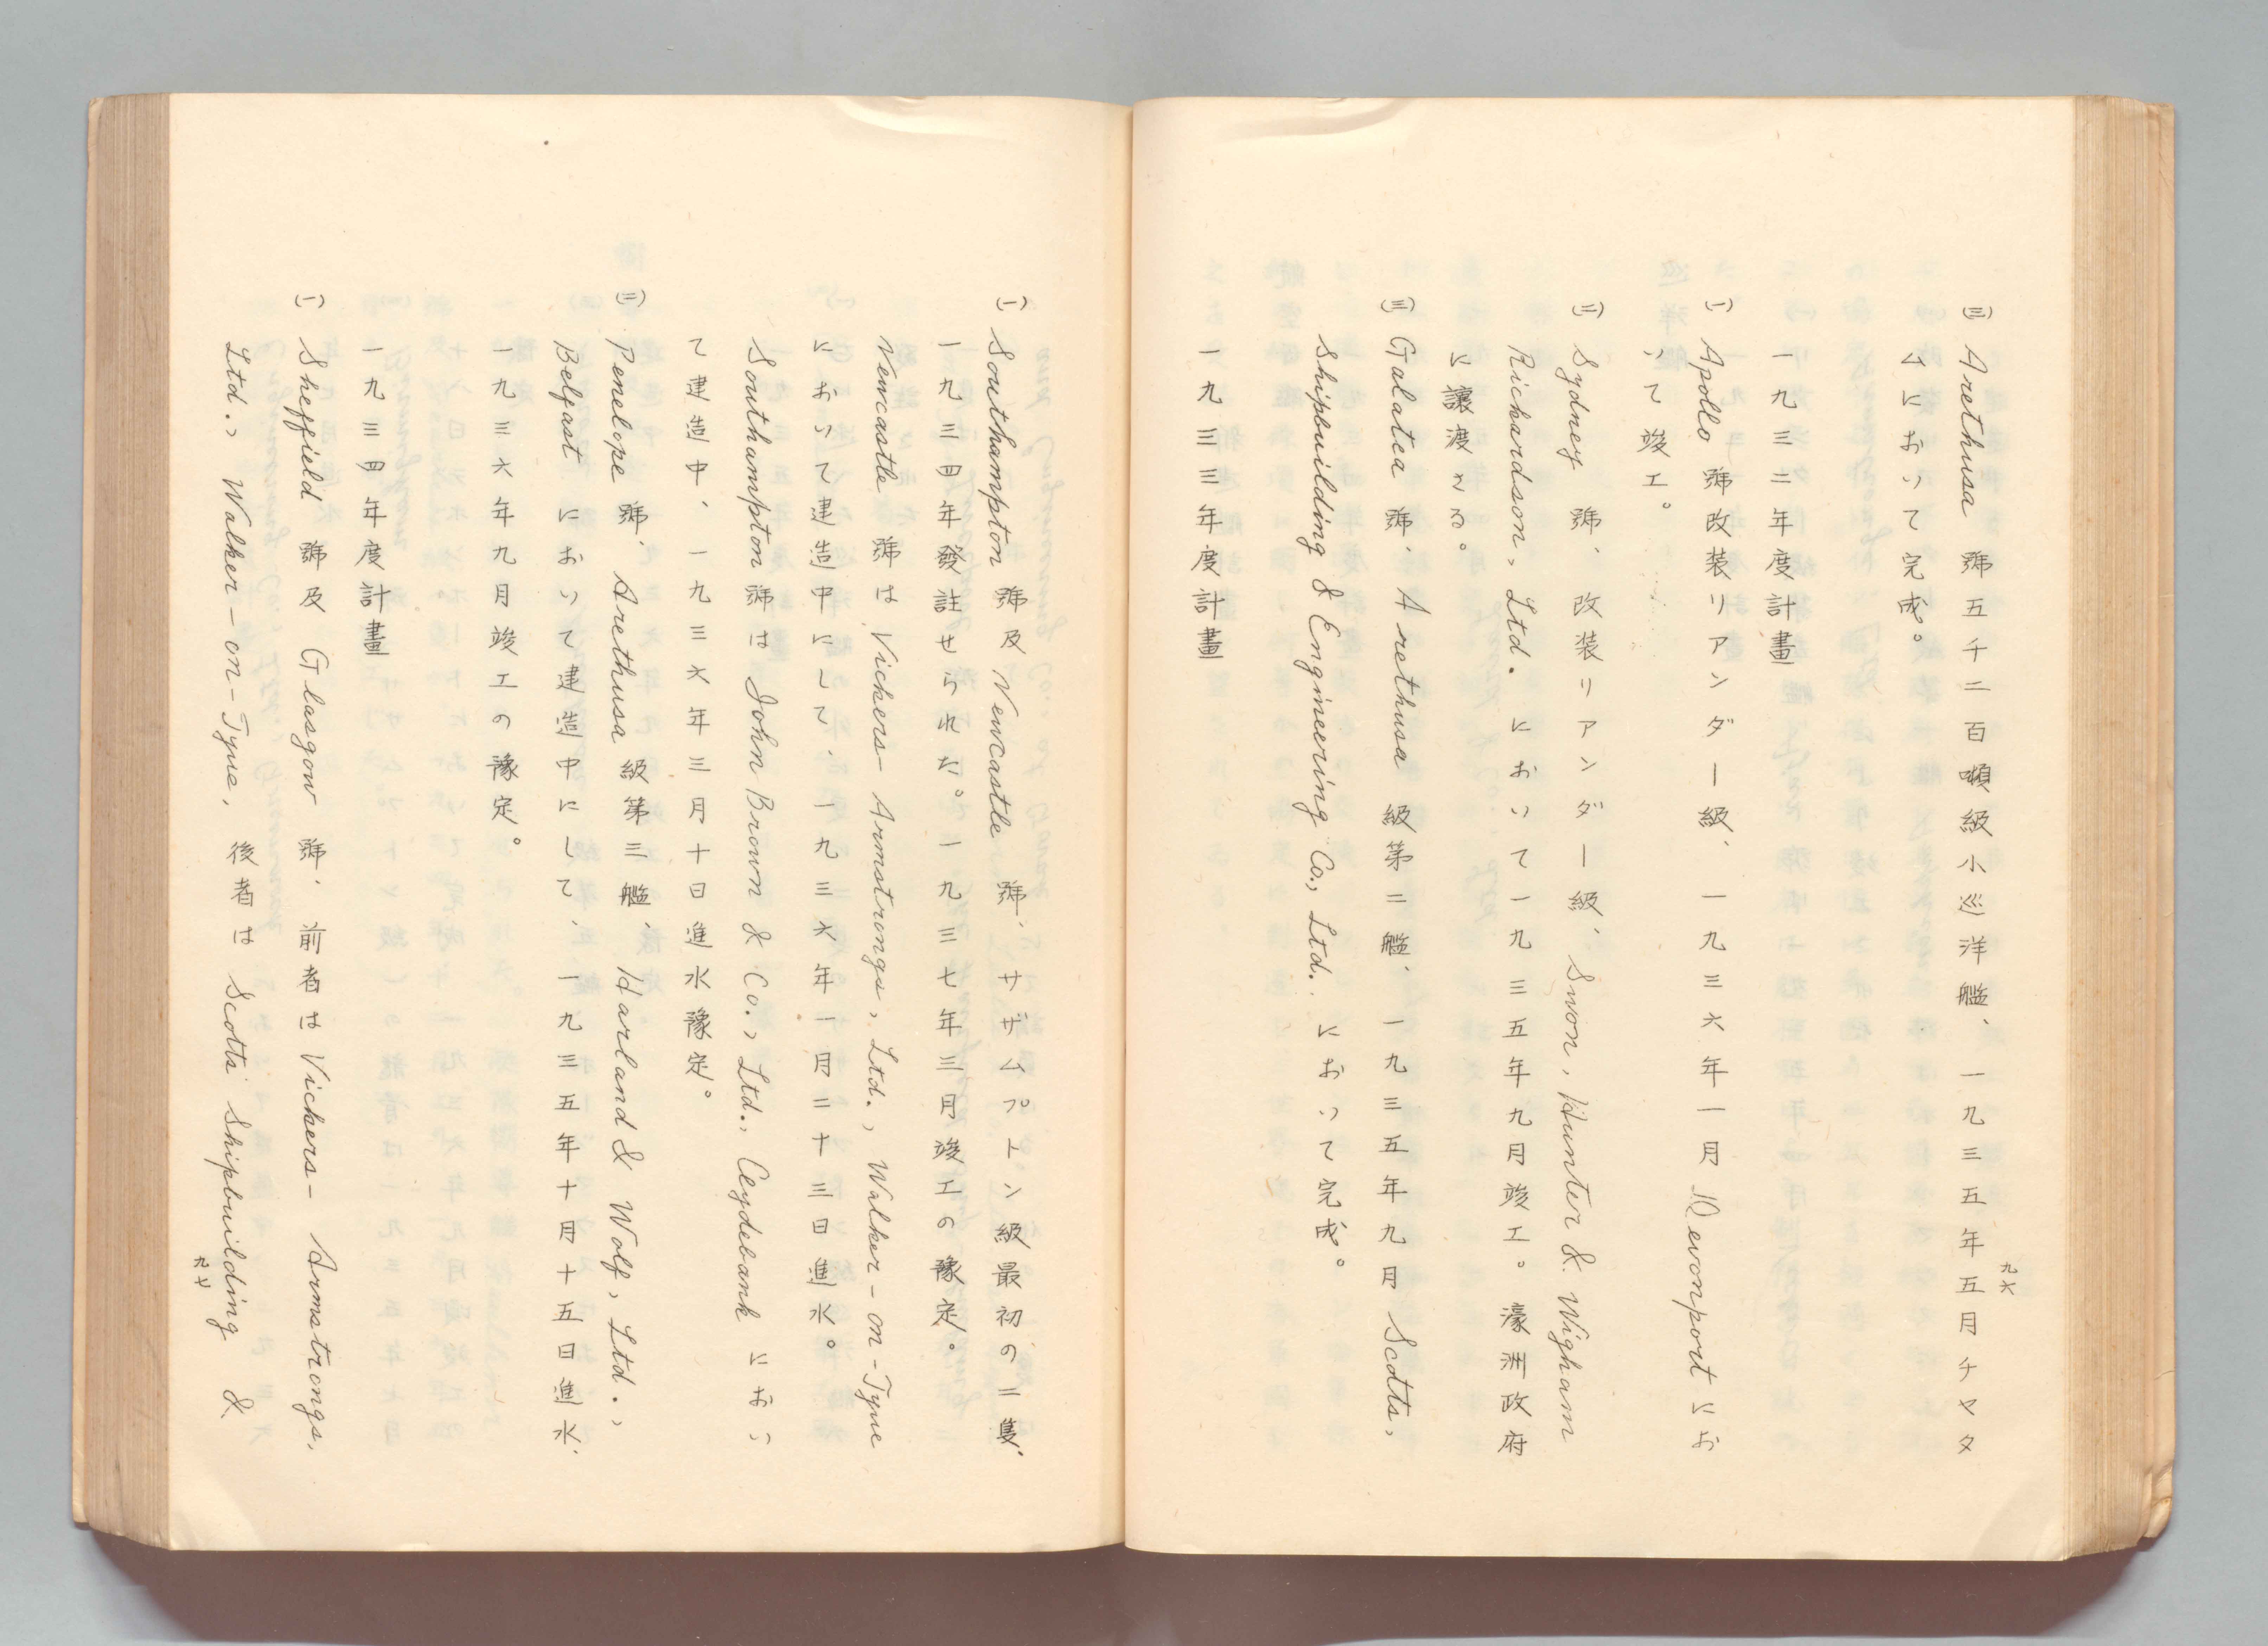 (三) Arethusa 號五千二百噸級小巡洋艦、一九三五年五月チヤタ
ムにおいて完成。
一九三二年度計畫
(一) Apollo 號改装リアンダー級、一九三六年一月 Devonport にお
いて竣工。
(二) Sydney 號、改装リアンダー級、Swon, Hunter & Wigham
Richardson, Ltd. において一九三五年九月竣工。濠洲政府
に讓渡さる。
(三) Galatea 號、Arethusa 級第二艦、一九三五年九月 Scotts,
Shipbuilding & Engineering Co., Ltd. において完成。
一九三三年度計畫
九六
(一) Southampton 號及 Newcastle 號、サザムプトン級最初の二隻、
一九三四年發註せられた。一九三七年三月竣工の豫定。
Newcastle 號は Vickers-Armstrongs, Ltd., Walker-on-Tyne
において建造中にして、一九三六年一月二十三日進水。
Southampton 號は John Brown & Co., Ltd., Clydebank におい
て建造中、一九三六年三月十日進水豫定。
(二) Penelope 號、Arethusa 級第三艦、Harland & Wolf, Ltd.,
Belfast において建造中にして、一九三五年十月十五日進水、
一九三六年九月竣工の豫定。
一九三四年度計畫
(一) Sheffield 號及 Glasgow 號、前者は Vickers-Armstrongs,
Ltd., Walker-on-Tyne, 後者は Scotts Shipbuilding &
九七